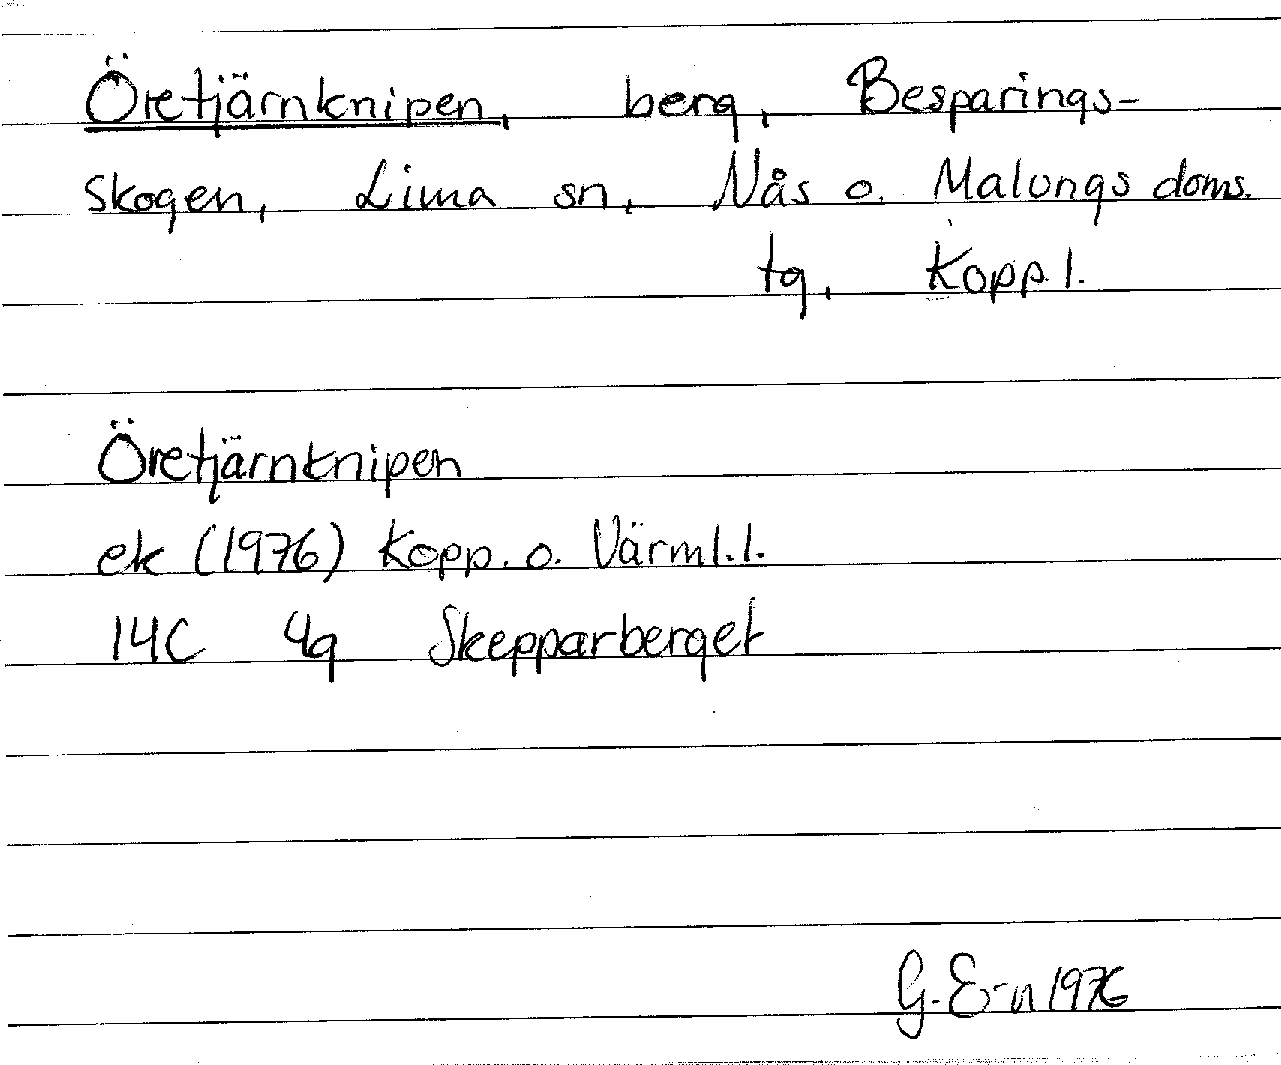 Öretjärnknipen, berg, Besparings-
skogen, Lima sn, Nås o. Malungs doms.
tg, Kopp.l.
Öretjärnknipen
ek (1976) Kopp. o. Värml.l.
14C 4g Skepparberget
G. E-n 1976